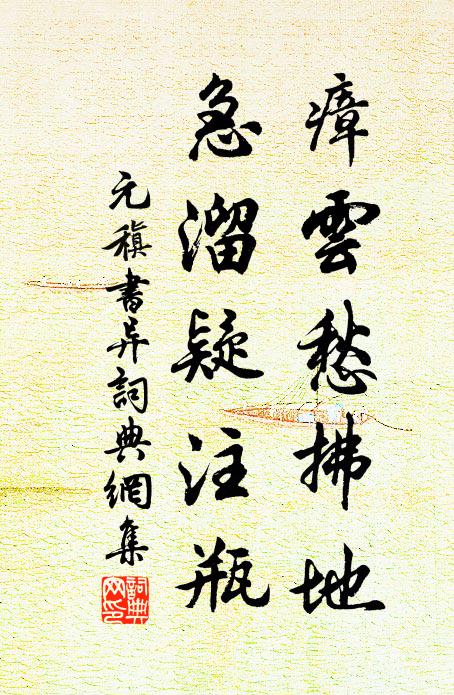 瘴雲愁拂地
急溜疑注瓶
元稹書异詞典網集
詞典
网印